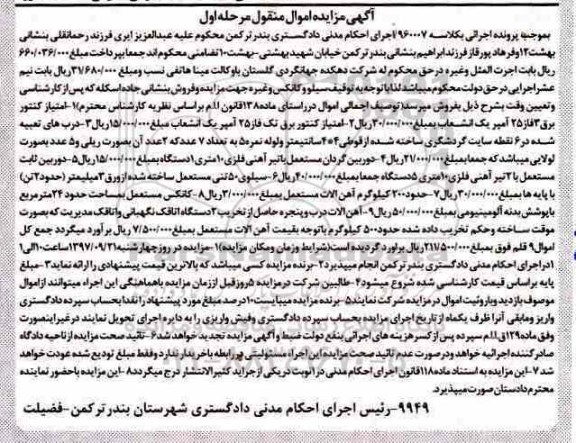 آگهی مزایده اموال منقول مرحله اول
بموجب پرونده اجرائی بکلاسه ۹۶۰۰۰۷ اجرای احکام مدنی دادگستری بندر ترکمن محکوم علیه عبدالعزیز ایری فرزند رحمانقلی بنشانی
بهشت ۱۲ و فرهاد پورقاز فرزند ابراهیم بنشانی بندر ترکمن خیابان شهید بهشتی-بهشت ۱۰ تضامنی محکوم اند جمعا بپرداخت مبلغ ۶۶۰/۰۳۶/۰۰۰
ریال بابت اجرت المثل و غیره در حق محکوم له شرکت دهکده جهانگردی گلستان با وکالت مینا هاتفی نسب و مبلغ ۳۱/۶۸۰/۰۰۰ ریال بابت نیم
عشر اجرایی در حق دولت محکوم میباشد لذا با توجه به توقیف سیلو و کانکس و غیره جهت مزایده و فروش بنشانی جاده اسکله که پس از کارشناسی
و تعیین وقت بشرح ذیل بفروش میرسد (توصیف اجمالی اموال در راستای ماده ۱۳۸ قانون ا.ا.م بر اساس نظریه کارشناس محترم) ۱-امتیاز کنتور
برق ۳ فاز ۲۵ آمپر یک انشعاب بمبلغ ۲۰/۰۰۰/۰۰۰ ریال ۲-امتیاز کنتور برق تک فاز ۲۵ آمپر یک انشعاب مبلغ ۱۵/۰۰۰/۰۰۰ ریال ۳-درب های تعبیه
شده در ۶ نقطه سایت گردشگری ساخته شده از قوطی ۴*۴ سانتیمتر و لوله نمره ۵ به تعداد ۷ عدد که ۲ عدد آن بصورت ریلی و ۵ عدد بصورت
لولایی میباشد که جمعا بمبلغ ۲۱/۰۰۰/۰۰۰ ریال ۴-دوربین گردان مستعمل با تیر آهنی فلزی ۱۰ متری ۱ دستگاه بمبلغ ۱۵/۰۰۰/۰۰۰ ریال ۵-دوربین ثابت
مستعمل با ۲ تیر آهنی فلزی ۱۰ متری ۵ دستگاه جمعا بمبلغ ۴۰/۰۰۰/۰۰۰ ریال ۶-سیلوی ۵۰ تنی مستعمل ساخته شده از ورق ۳ میلیمتر (حدود ۲ تن)
با پایه ها بمبلغ ۳۰/۰۰۰/۰۰۰ ریال ۷-حدود ۲۰۰ کیلوگرم آهن آلات مستعمل بمبلغ ۳/۰۰۰/۰۰۰ ریال ۸-کانکس مستعمل بمساحت حدود ۲۴ مترمربع
با پوشش بدنه آلومینیومی بمبلغ ۵۰/۰۰۰/۰۰۰ ریال ۹-آهن آلات درب و پنجره حاصل از تخریب ۲ دستگاه اتاقک نگهبانی و اتاقک مدیریت که بصورت
موقت ساخته و حکم تخریب داده شده حدود ۵۰۰ کیلوگرم با توجه بقیمت آهن آلات مستعمل بمبلغ ۷/۵۰۰/۰۰۰ ریال برآورد میگردد جمع کل
اموال ۹ قلم فوق بمبلغ ۲۱۱/۵۰۰/۰۰۰ ریال برآورد گردیده است (شرایط و زمان و مکان مزایده) ۱-مزایده در روز چهارشنبه ۱۳۹۷/۰۹/۲۱ ساعت ۱۰ الی ۱۱
در اجرای احکام مدنی دادگستری بندر ترکمن انجام میپذیرد ۲-برنده مزایده کسی میباشد که بالاترین قیمت پیشنهادی را ارائه نماید ۳-مبلغ
پایه براساس قیمت کارشناسی شده شروع میشود ۴-طالبین شرکت در مزایده ۵ روز قبل از زمان مزایده با هماهنگی این اجراء میتوانند از اموال
موصوف بازدید و با رویت اموال در مزایده شرکت نمایند ۵-برنده مزایده میبایست ۱۰ درصد مبلغ مورد پیشنهاد را نقدا بحساب سپرده دادگستری
واریز و مابقی آنرا ظرف یکماه از تاریخ اجرای مزایده بحساب سپرده دادگستری و فیش واریزی را به دایره اجرای تحویل نمایند در غیر اینصورت
وفق ماده ۱۲۹ ق.ا.ا.م سپرده پس از کسر هزینه های اجرائی بنفع دولت ضبط و آگهی مزایده تجدید خواهد شد ۶-تائید صحت مزایده از ناحیه دادگاه
صادر کننده اجرائیه خواهد و در صورت عدم تائید صحت مزایده این اجراء مسئولیتی در رابطه با خریدار ندارد و فقط مبلغ تودیع شده عودت خواهد
شد ۷-این مزایده به استناد ماده ۱۱۸ قانون اجرای احکام مدنی در ۱ نوبت در یکی از جراید کثیر الانتشار درج میگردد ۸-این مزایده با حضور نماینده
محترم دادستان صورت میپذیرد.
۹۹۴۹-رئیس اجرای احکام مدنی دادگستری شهرستان بندر ترکمن-فضیلت